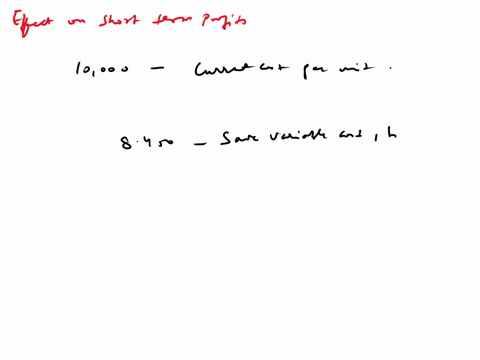 Effect on short term Profits
10,000 — Current cost per unit .
8.450 — Save variable cost , h